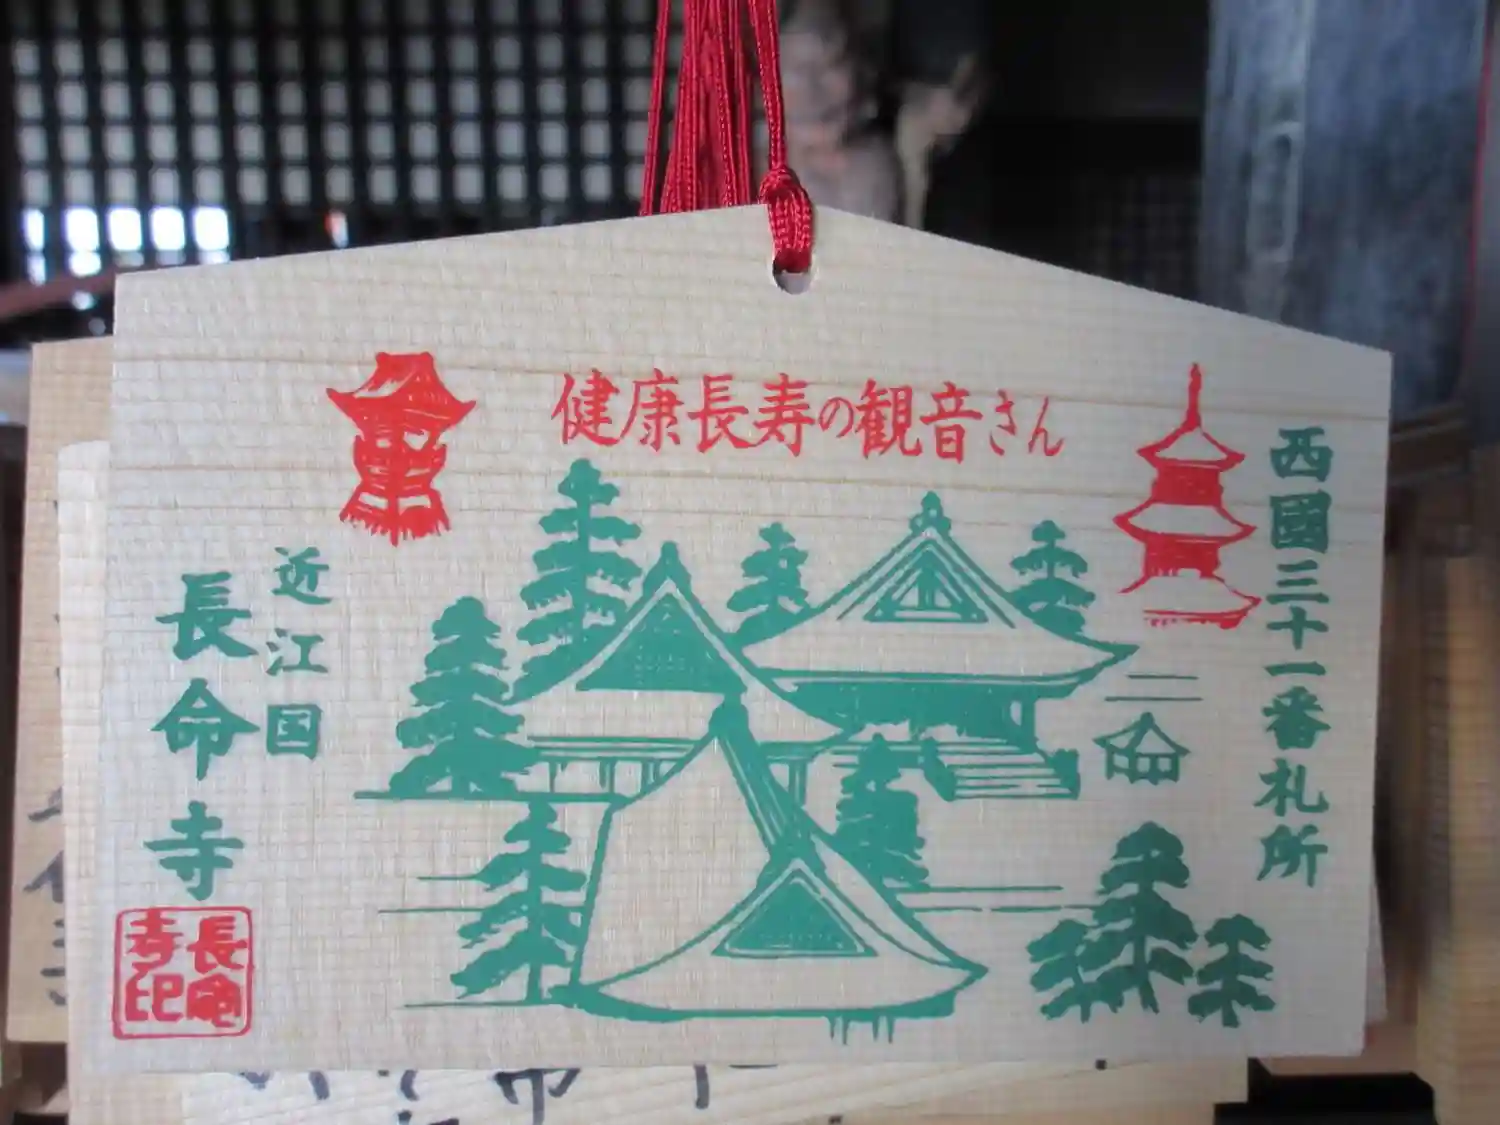 健康長寿の観音さん
西國三十一番札所
近江国
長命寺
長命
寺印